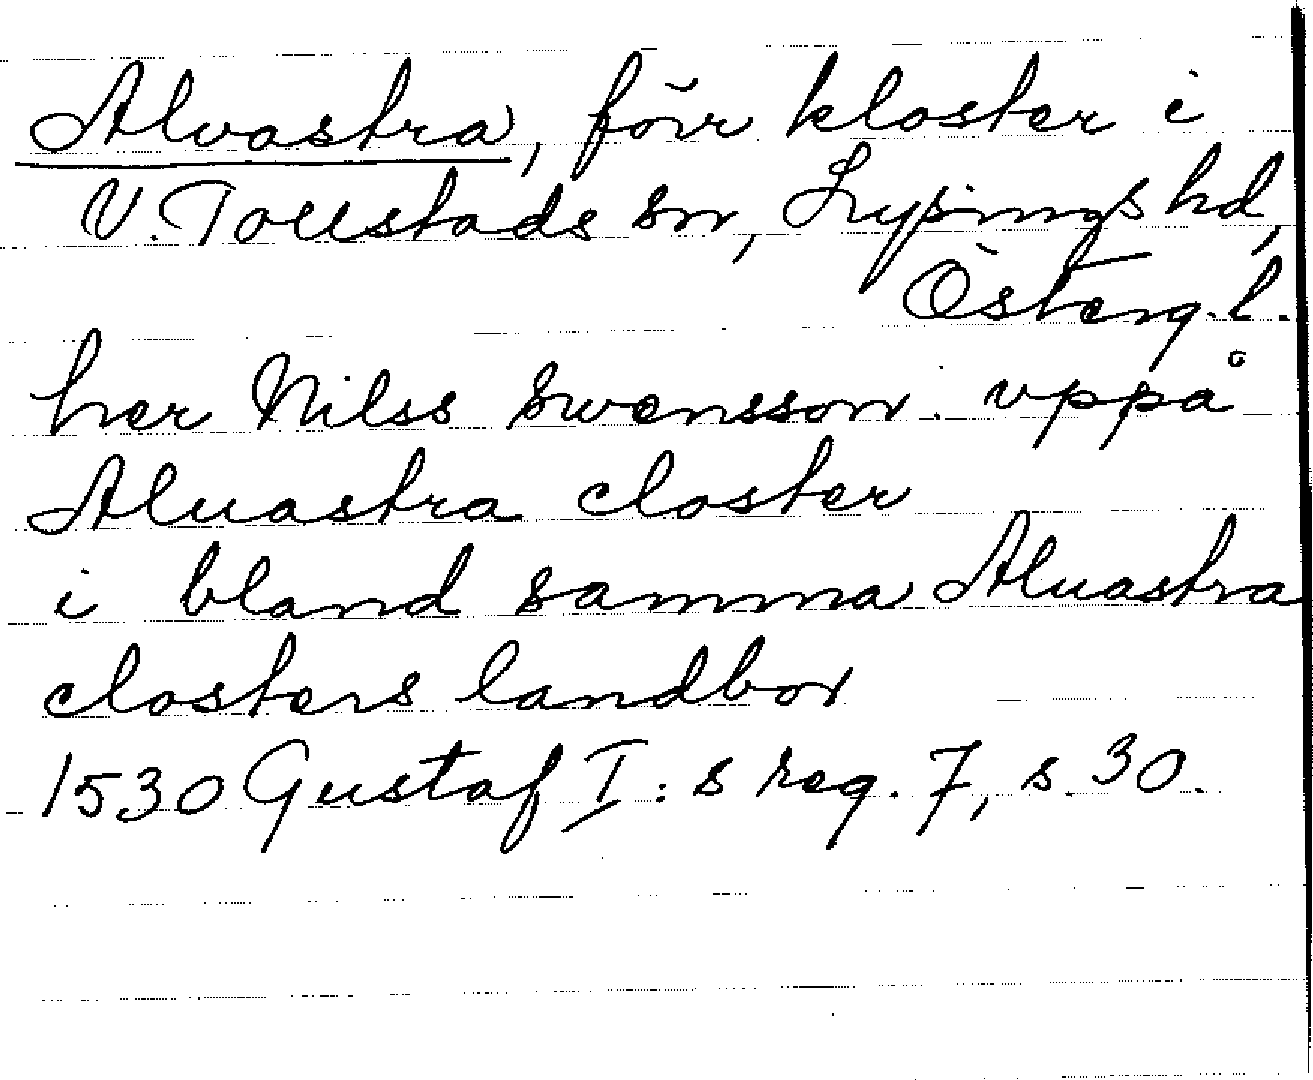 Alvastra, förr kloster i
V. Tollstads sn, Lysings hd,
Österg. l.
her Nilss Swensson uppå
Aluastra closter
i bland samma Aluastra
closters landbor
1530 Gustaf I:s reg. 7, s. 30.